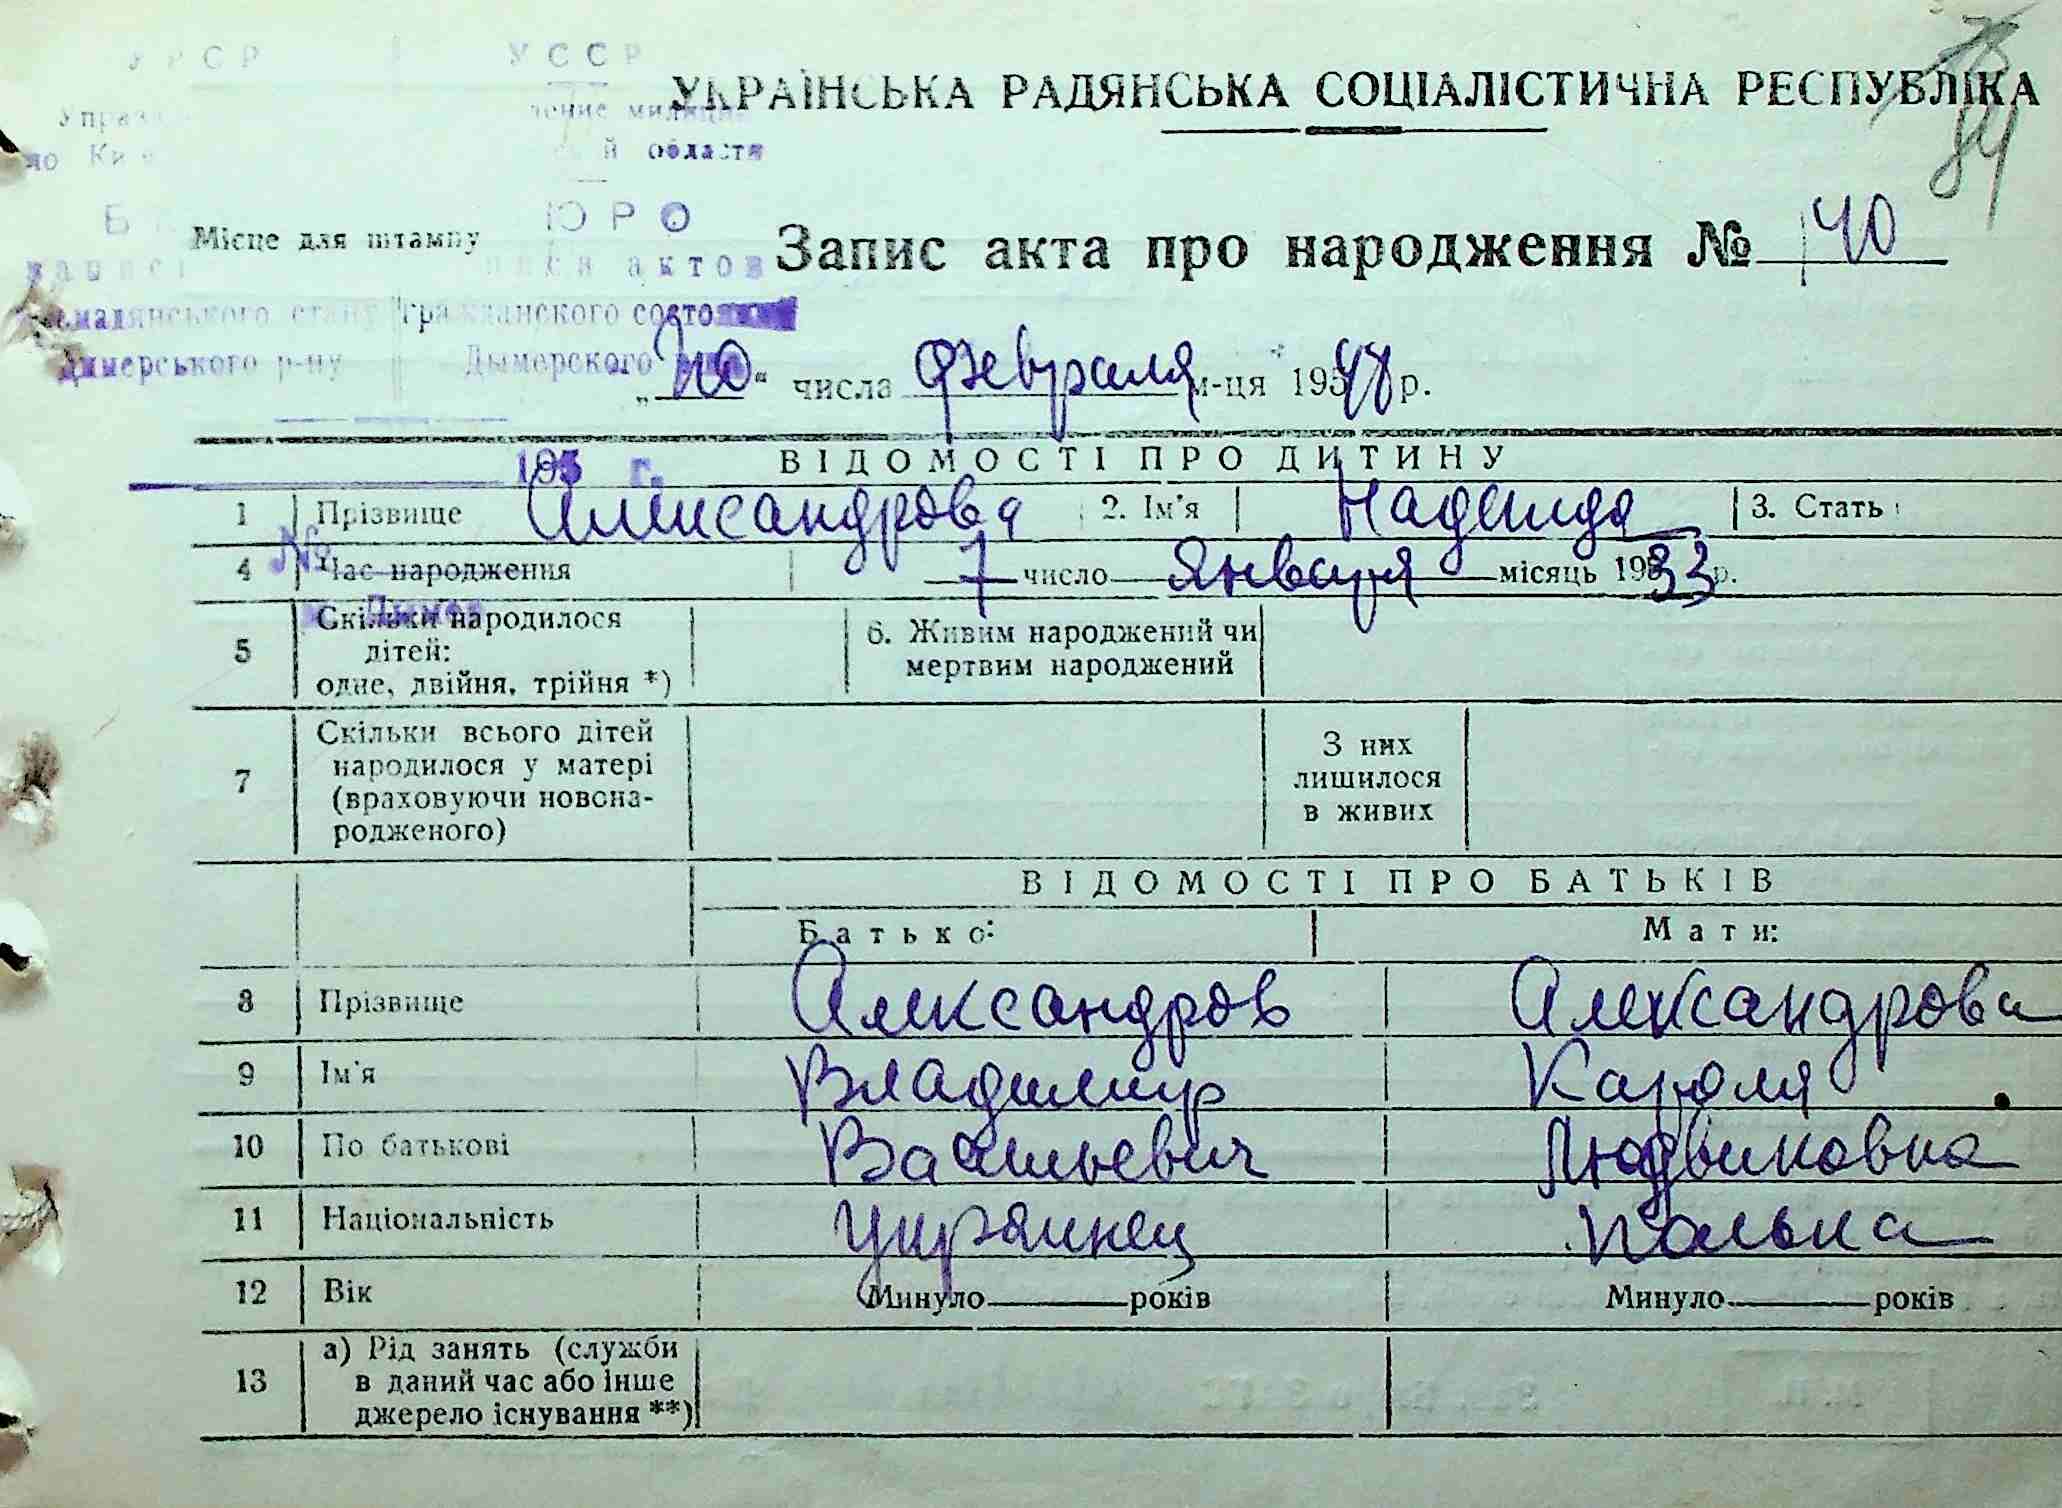 УРСР УССР
УКРАЇНСЬКА РАДЯНСЬКА СОЦІАЛІСТИЧНА РЕСПУБЛІКА
й области
84
Місце для штампу
ЮРО
Запис акта про народження № 40
актов
стану гражданского
Димерського р-ну Дымерского
„10“ числа февраля м-ця 1948 р.
193 г.
ВІДОМОСТІ ПРО ДИТИНУ
1 Прізвище Александрова 2. Ім'я Надежда 3. Стать
№
4 Час народження 7 число января місяць 1933 р.
5 Скільки народилося дітей: одне, двійня, трійня *) 6. Живим народжений чи мертвим народжений
7 Скільки всього дітей народилося у матері (враховуючи новона-родженого) З них лишилося в живих
ВІДОМОСТІ ПРО БАТЬКІВ
Батько: Мати:
8 Прізвище Александров Александрова
9 Ім'я Владимир Кароля
10 По батькові Васильевич Людвиковна
11 Національність украинец полька
12 Вік Минуло років Минуло років
13 а) Рід занять (служби в даний час або інше джерело існування **)